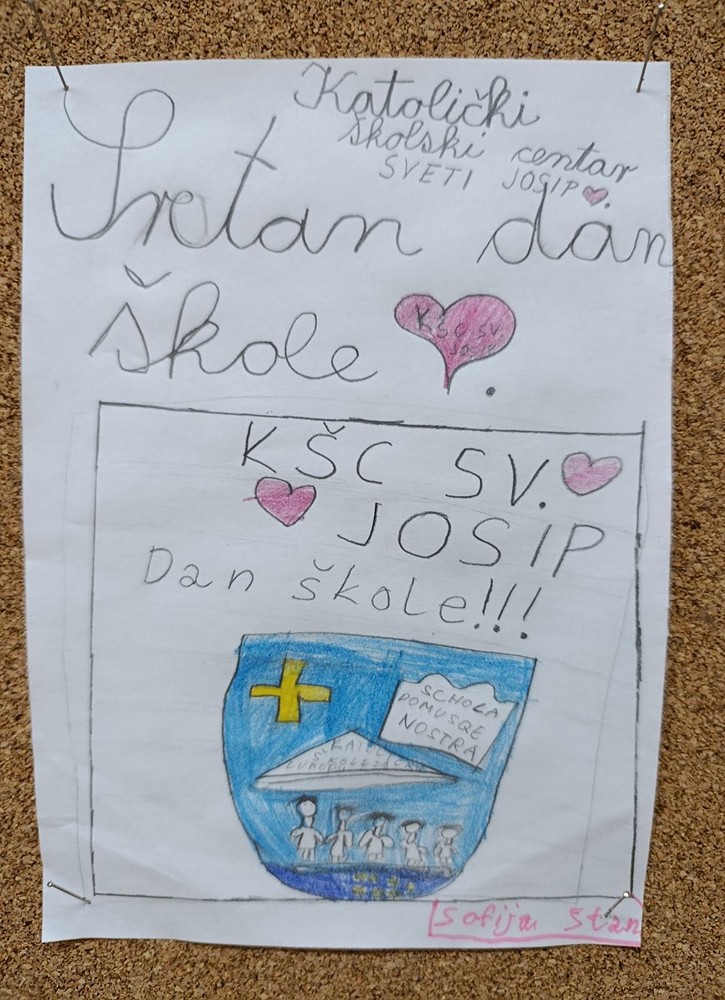 Katolički
školski centar
SVETI JOSIP
Sretan dan
škole
KŠC SV.
JOSIP
.
KŠC SV.
JOSIP
Dan škole!!!
SCHOLA
DOMUSQE
NOSTRA
Sofija Stan